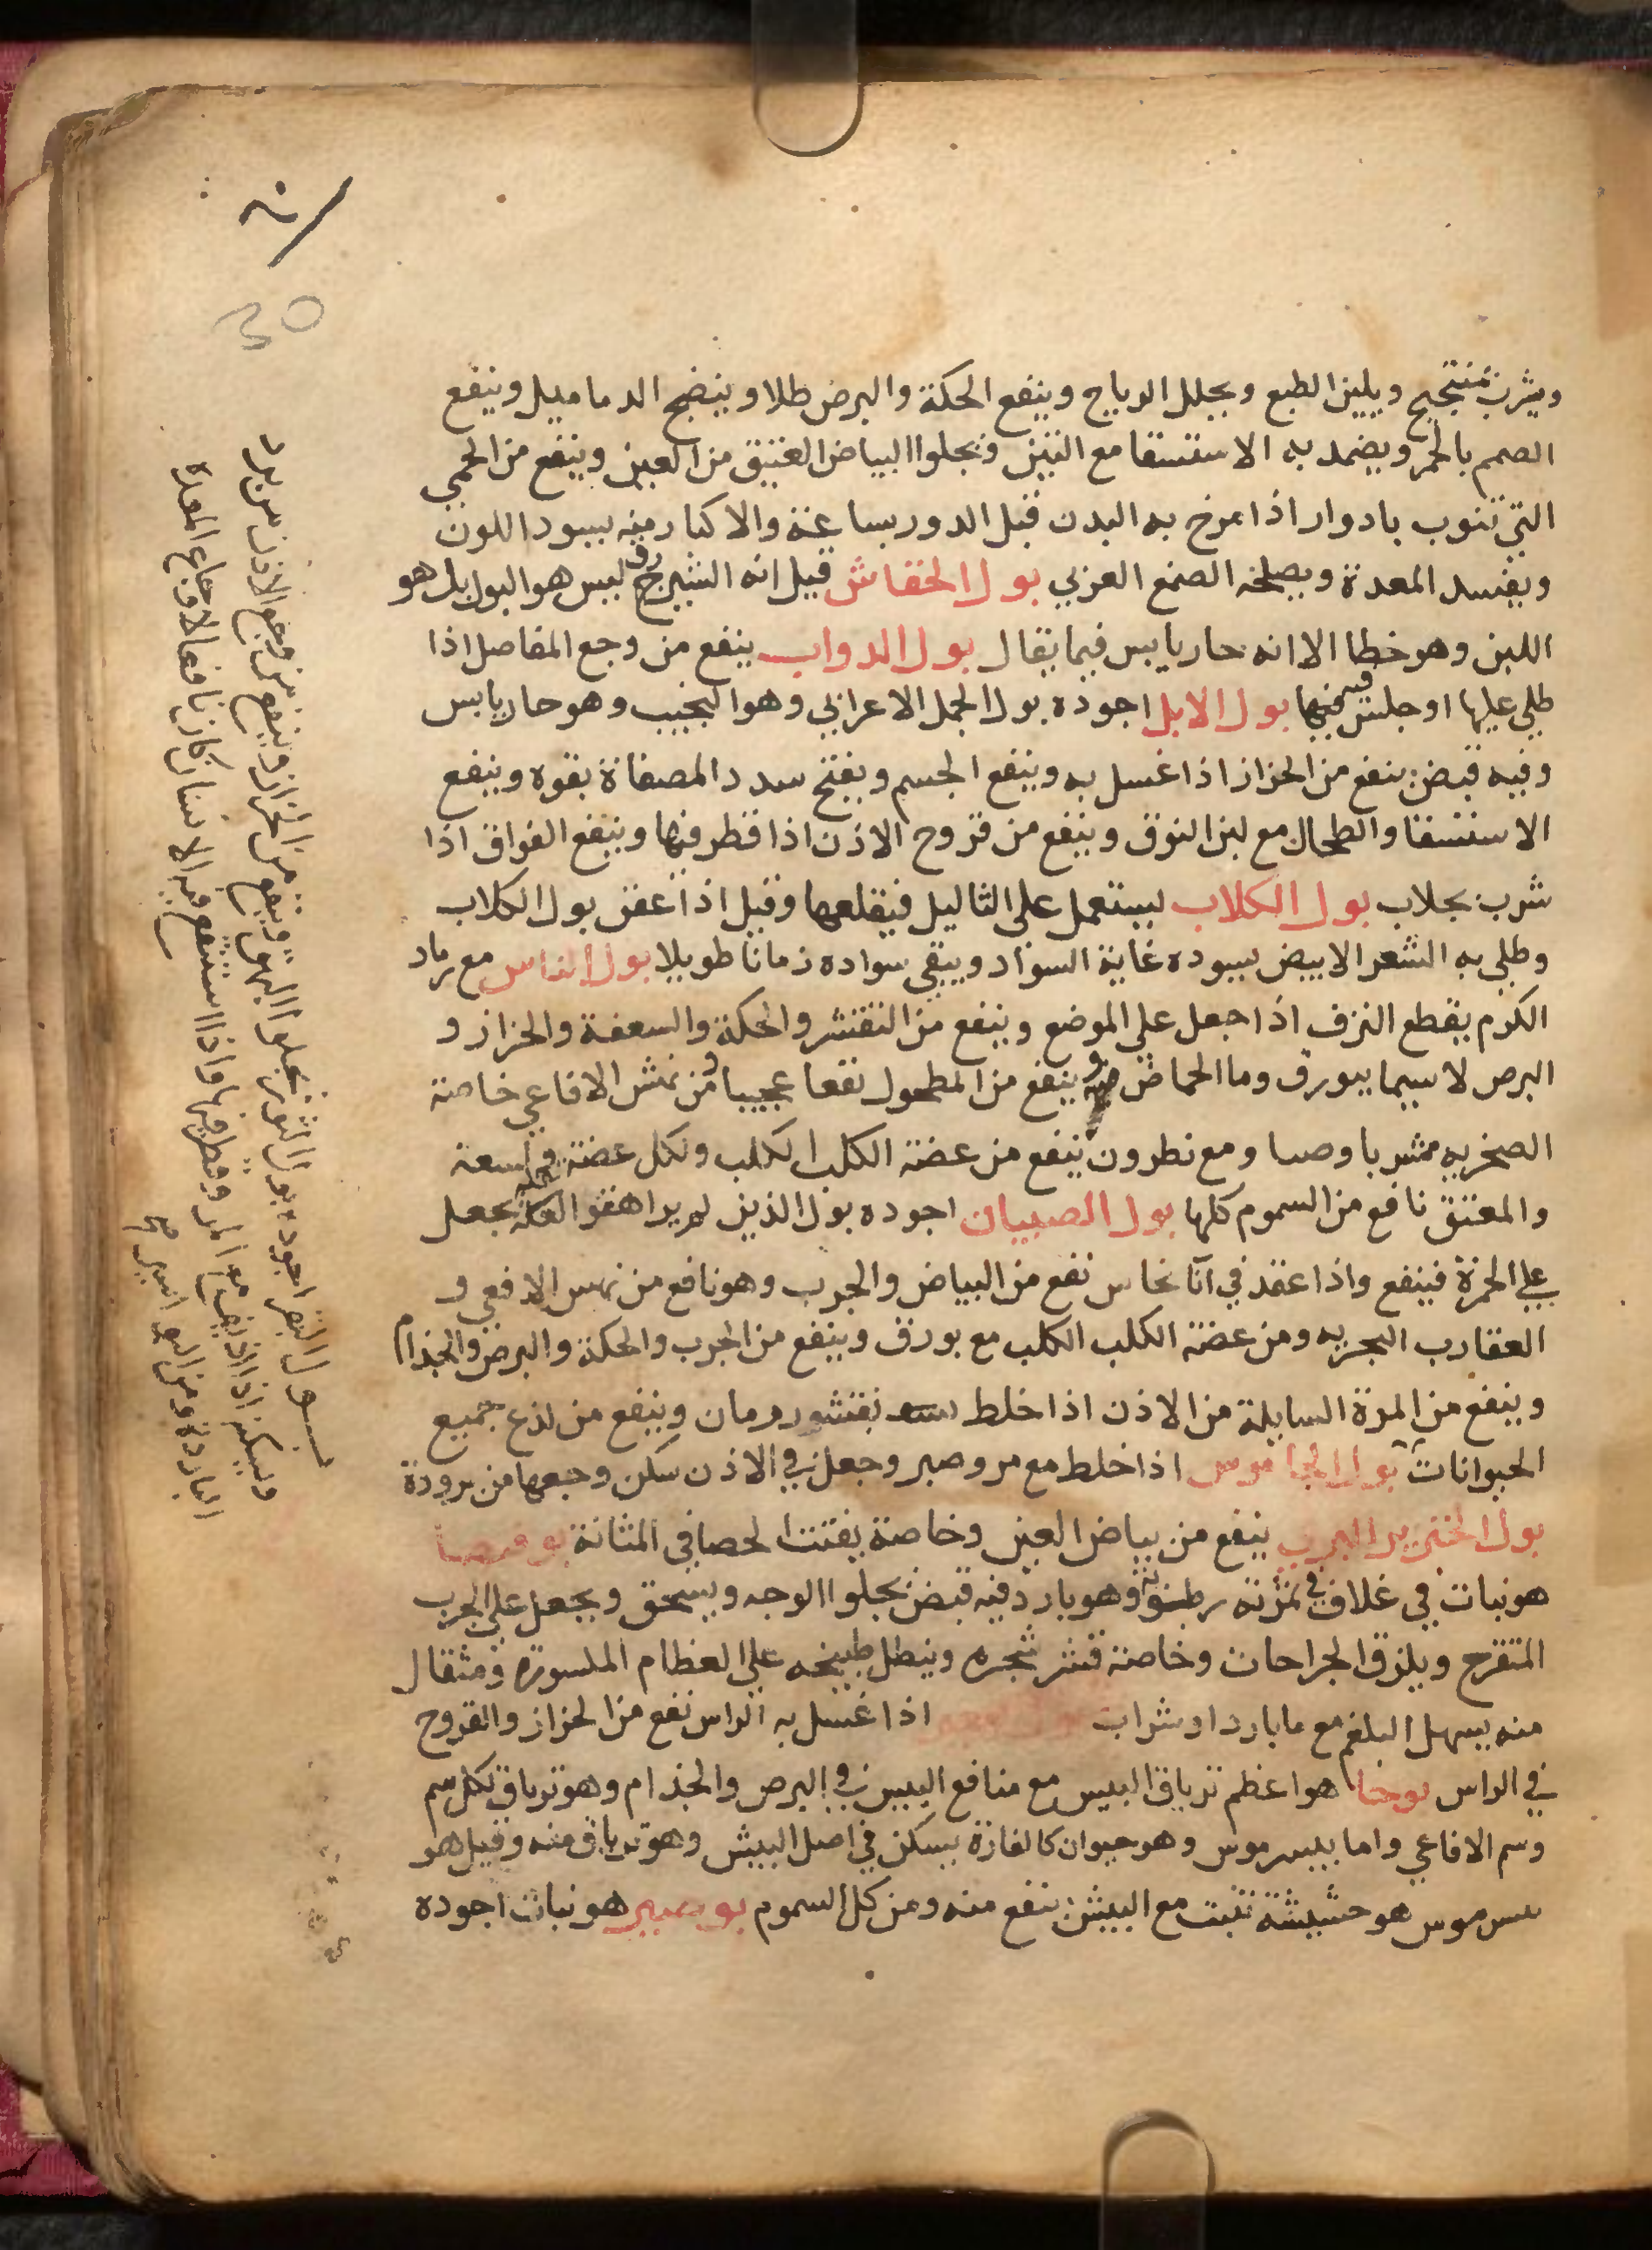 ويشرب بمنتجج ويلين الطبع ويحلل الرياح وينفع الحكة والبرص طلا وينضج الدماميل وينفع
الصمم بالخمر ويضمد به الاستسقا مع التين ويجلوا البياض العتيق من العين وينفع من الحمى
التي تنوب بادوار اذا مرخ به البدن قبل الدور بساعة والاكثار منه يسود اللون
ويفسد المعدة ويصلحه الصمغ العربي بول الخفاش قيل انه الشيرزق ليس هو البول بل هو
اللبن وهو خطا الا انه حار يابس فيما يقال بول الدواب ينفع من وجع المفاصل اذا
طلي عليها او جلس فيها بول الابل اجوده بول الجمل الاعرابي وهو النجيب وهو حار يابس
وفيه قبض ينفع من الحزاز اذا غسل به وينفع الجسم ويفتح سدد المصفاة بقوه وينفع
الاستسقا والطحال مع لبن النوق وينفع من قروح الاذن اذا قطر فيها وينفع الفواق اذا
شرب بجلاب بول الكلاب يستعمل على الثاليل فيقلعها وقيل اذا عفن بول الكلاب
وطلي به الشعر الابيض سوده غاية السواد ويبقى سواده زمانا طويلا بول الناس مع رماد
الكرم يقطع النزف اذا جعل على الموضع وينفع من التقشر والحكة والسعفة والحزاز و
البرص لا سيما ببورق وما الحماض وينفع من المطحول نفعا عجيبا ومن نهش الافاعي خاصة
الصخريه شربا وصبا ومع نطرون ينفع من عضة الكلب الكلب ولكل عضة ولسعة
والمعتق نافع من السموم كلها بول الصبيان اجوده بول الذين لم يراهقوا الحلم يجعل
على الحمرة فينفع واذا عقد في انا نحاس نفع من البياض والجرب وهو نافع من نهس الافعي و
العقارب البحريه ومن عضة الكلب الكلب مع بورق وينفع من الجرب والحكة والبرص والجذام
وينفع من المرة السايلة من الاذن اذا خلط بقشور رمان وينفع من لذع جميع
الحيوانات بول الجاموس اذا خلط مع مر وصبر وجعل في الاذن سكن وجعها من برودة
بول الخنزير البري ينفع من بياض العين وخاصة يفتت الحصا في المثانة
هو نبات في غلاف في ثمرته رطوبة وهو بارد فيه قبض يجلوا الوجه ويسحق ويجعل على الجرب
المتقرح ويلزق الجراحات وخاصة قشر شجره وينطل طبيخه على العظام المكسورة ومثقال
منه يسهل البلغم مع ما بارد او شراب اذا غسل به الراس نفع من الحزاز والقروح
في الراس بوحا هو اعظم ترياق البيش مع منافع البيش في البرص والجذام وهو ترياق لكل سم
وسم الافاعي واما بيش موش وهو حيوان كالفارة يسكن في اصل البيش وهو ترياق منه وقيل هو
بيش موش هو حشيشة تنبت مع البيش ينفع منه ومن كل السموم بوصير هو نبات اجوده
بول البقر اجوده بول الثور يجلوا البهق وينفع من الحزاز وينفع من وجع الاذن من برد
ويسكن اذا مع المر وقطر فيها واذا استنقع فيه الانسان كان نافعا لاوجاع المعدة
الباردة ومن